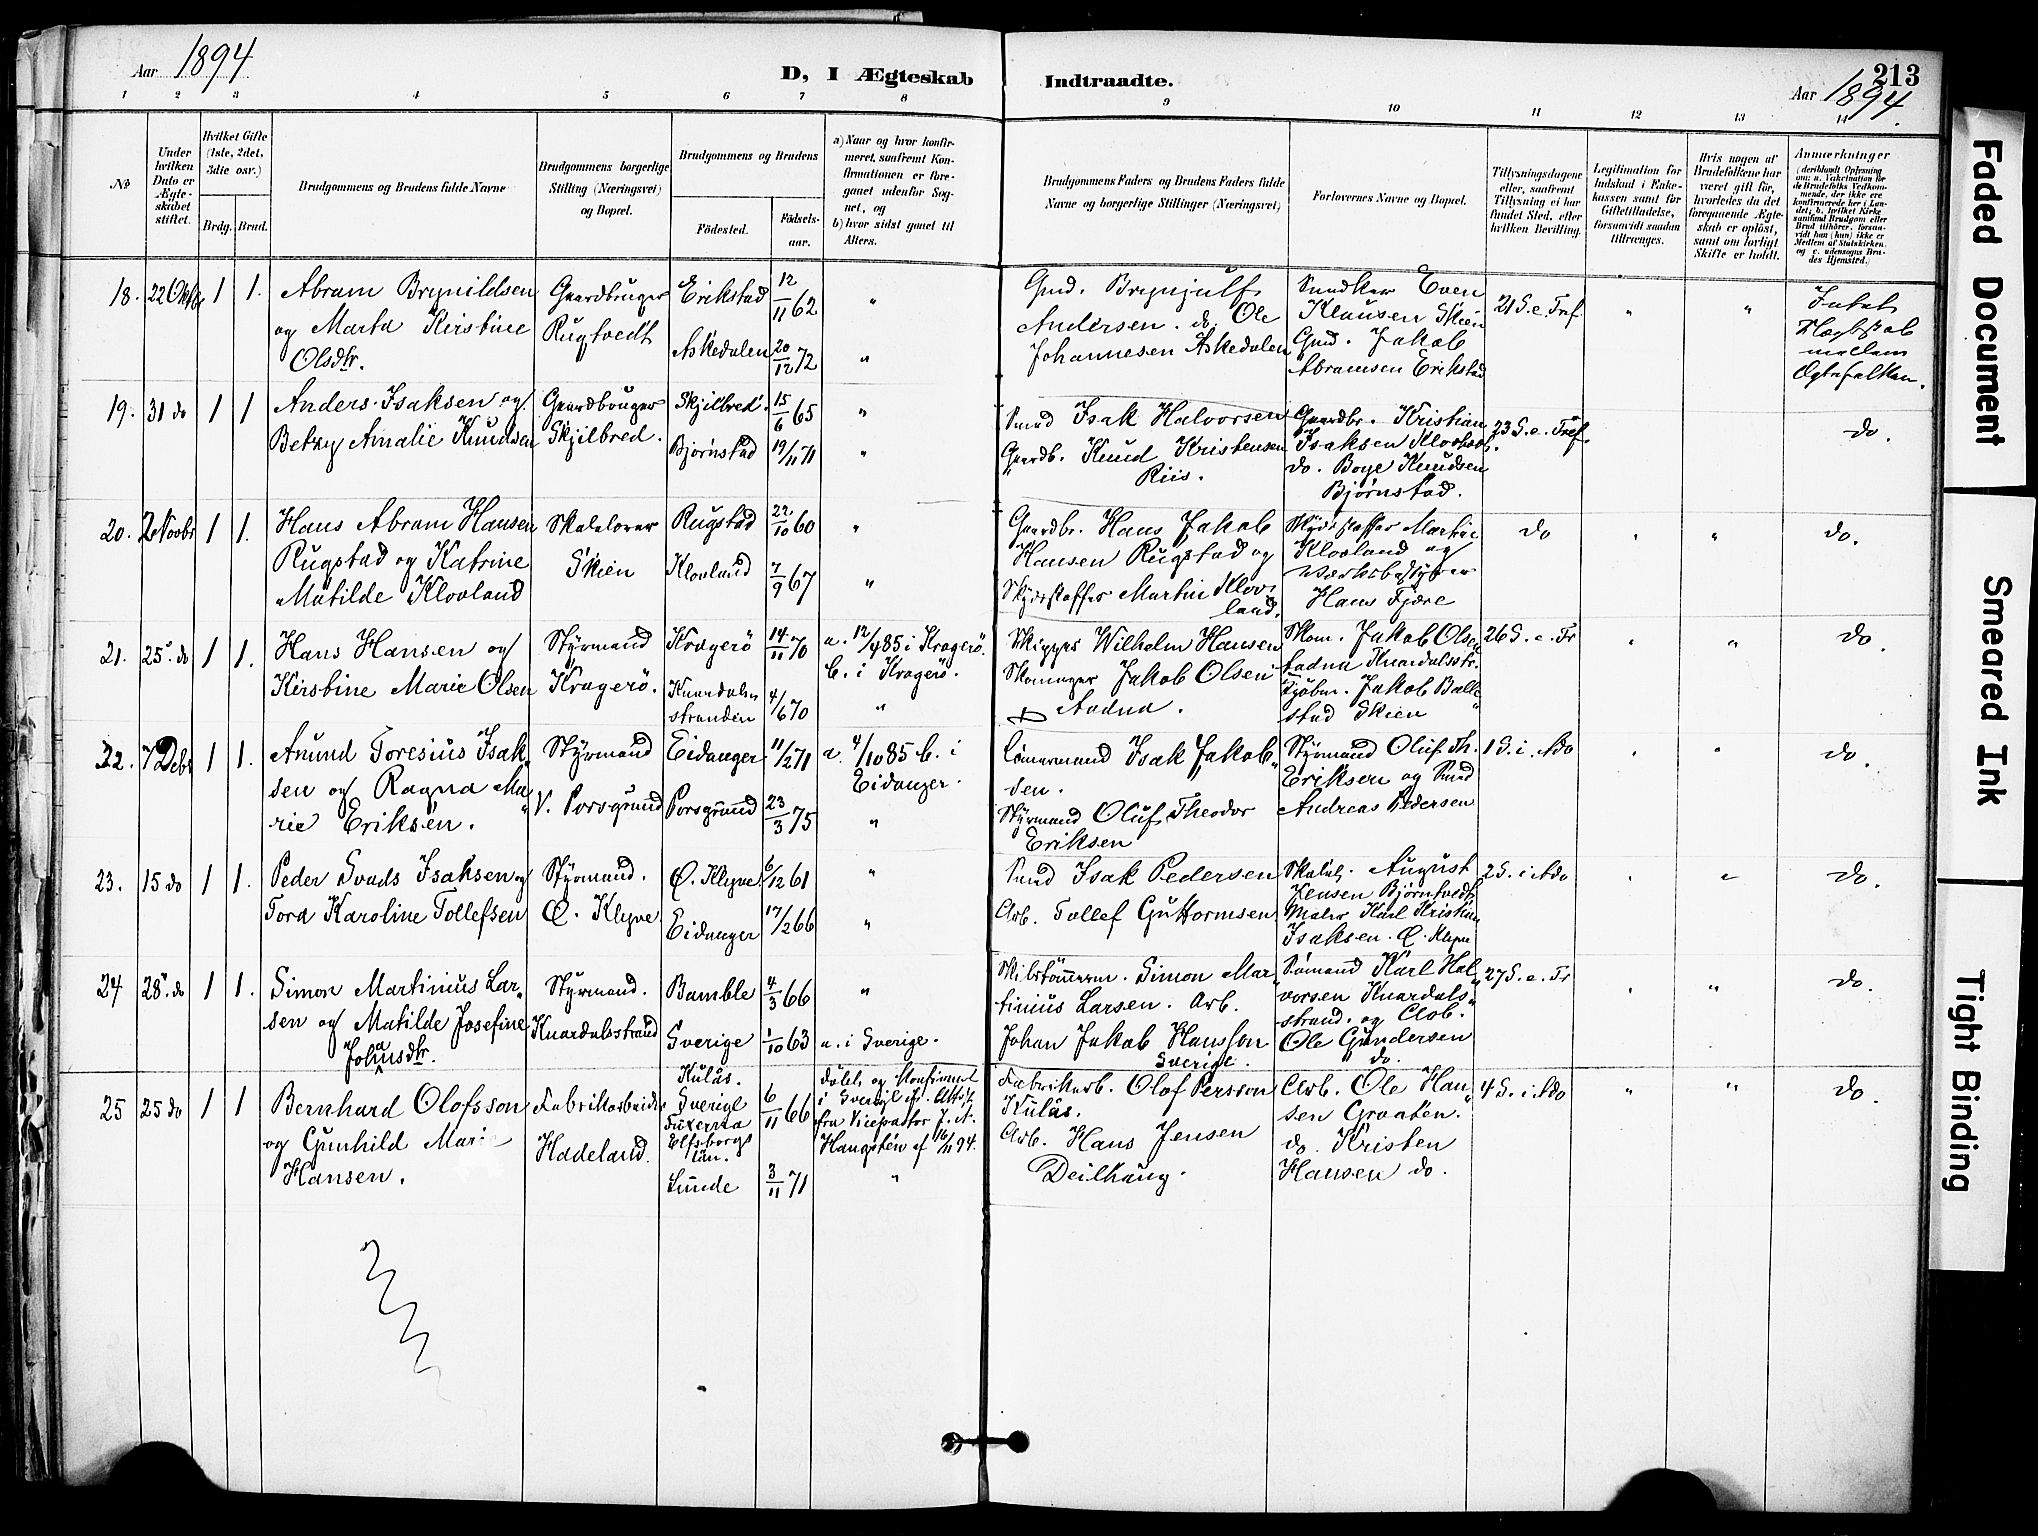 Aar 1894
D, I Ægteskab Indtraadte.
213
Aar 1894.
1 2 3 4 5 6 7 8 9 10 11 12 13 14
No
Under hvilken Dato er Ægteskabet stiftet.
Hvilket Gifte (1ste, 2det, 3die osv.)
Brdg. Brud.
Brudgommens og Brudens fulde Navne
Brudgommens borgerlige Stilling (Næringsvei) og Bopæl.
Brudgommens og Brudens
Födested. Födsels-aar.
a) Naar og hvor konfirmeret, saafremt Konfirmationen er foregaaet udenfor Sognet, og
b) hvor sidst gaaet til Alters.
Brudgommens Faders og Brudens Faders fulde Navne og borgerlige Stillinger (Næringsvei)
Forlovernes Navne og Bopæl.
Tillysningsdagene eller, saafremt Tillysning ei har fundet Sted, efter hvilken Bevilling.
Legitimation for Indskud i Enkekassen samt for Giftetilladelse, forsaavidt saadan tiltrænges.
Hvis nogen af Brudefolkene har været gift før, hvorledes da det foregaaende Ægteskab er oplöst, samt om lovligt Skifte er holdt.
Anmærkninger
18. 22 Oktb 1 1. Abram Brynildsen
og Marta Kirstine
Olsdtr.
Gaardbruger
Rugtvedt
Erikstad 12/11 62 "
Askedalen 20/12 72 "
Gmd. Brynjulf
Andersen. do. Ole
Johannesen Askedalen
Sundker Even
Klausen Skien
Gmd. Jakob
Abramsen Erikstad
21 S. e. Tref. " "
mellem
Ægtefolken.
19. 31 do 1 1 Anders Isaksen og
Betzy Amalie Knudsen
Gaardbruger
Skjilbred.
Skjilbred. 15/6 65 "
Bjørnstad 19/11 71 "
Isak Halvorsen
Gaardb. Knud Kristensen
Riis.
Gaardbr. Kristian
Isaksen
do. Boye Knudsen
Bjørnstad.
23 S. e. Tref. do.
20. 2 Novbr 1 1. Hans Abram Hansen
Rugstad og Katrine
Matilde Klovland
Skolelærer
Skien
Rugstad 22/10 60 "
Klovland 7/9 67 "
Gaardbr. Hans Jakob
Hansen Rugstad og
Skydsskaffer Martin Klov-
land.
Skydsskaffer Martin
Klovland og
Værksbestyrer
Hans Fjære
do " " do.
21. 25. do 1 1. Hans Hansen og
Kirstine Marie Olsen
Styrmand
Kragerö.
Kragerö 14/11 70 a. 12/4 85 i Kragerö.
b. i Kragerö.
Knardals-
stranden 4/6 70 "
Skipper Wilhelm Hansen
Skomager Jakob Olsen
Aadna.
Skom. Jakob Olsen
Aadna Knardalsstr.
Kjøbm. Jakob Balle-
stad Skien
26 S. e. Tr " " do.
22. 7 Debr 1 1. Anund Toresius Isak-
sen og Ragna Ma-
rie Eriksen.
Styrmand
V. Porsgrund
Eidanger 11/2 71 a. 4/10 85 b. i
Eidanger.
Porsgrund 23/3 75 "
Tömmermand Isak Jakob-
sen.
Styrmand Oluf Theodor
Eriksen
Styrmand Oluf Th.
Eriksen og
Andreas Pedersen
1 S. i. Ado " " do.
23. 15 do 1 1. Peder Isaksen og
Tora Karoline Tollefsen
Styrmand.
Ø. Klyve
Ø. Klyve 6/12 61 "
Eidanger 17/2 66 "
Isak Pedersen
Arb. Tollef Guttormsen.
August
Jensen Bjørntvedt,
Maler Karl Kristian
Isaksen. Ø. Klyve
2 S. i Ado " " do.
24 28. do 1 1. Simon Martinius Lar-
sen og Matilde Josefine
Johansdtr.
Styrmand.
Knardalsstrand
Bamble 4/3 66 "
Sverige 1/10 63 a. i Sverige.
Skibstömmerm. Simon Mar-
tinius Larsen. Arb.
Johan Jakob Hansson
Sverige.
Sømand Karl Hal-
vorsen Knardals-
strand. og Arb.
Ole Gundersen
do.
27 S. e. Tr " " do.
25 25 do 1 1 Bernhard Olofsson
og Gunhild Marie
Hansen.
Fabrikarbeider
Hadeland.
Kulås.
Sverige
Tuxerna
Elfsborgs
län. 6/11 66
Lunde 3/11 71
Födt og Konfirmeret
i Sverige
fra Vicepastor J. A.
Haugstén af 16/11 94.
"
Fabrikarb. Olof Persson
Kulås.
Arb. Hans Jensen
Deilhaug.
Arb. Ole Han-
sen Graaten.
do. Kristen
Hansen do.
4 S. i Ado " " do.
Faded Document
Smeared Ink
Tight Binding